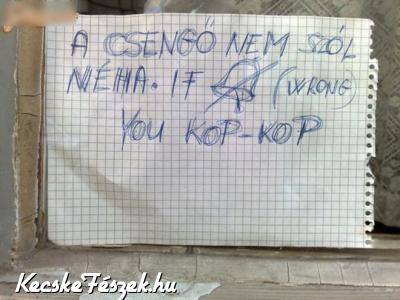 A CSENGŐ NEM SZÓL
NÉHA. IF (WRONG)
YOU KOP-KOP
KecskeFészek.hu